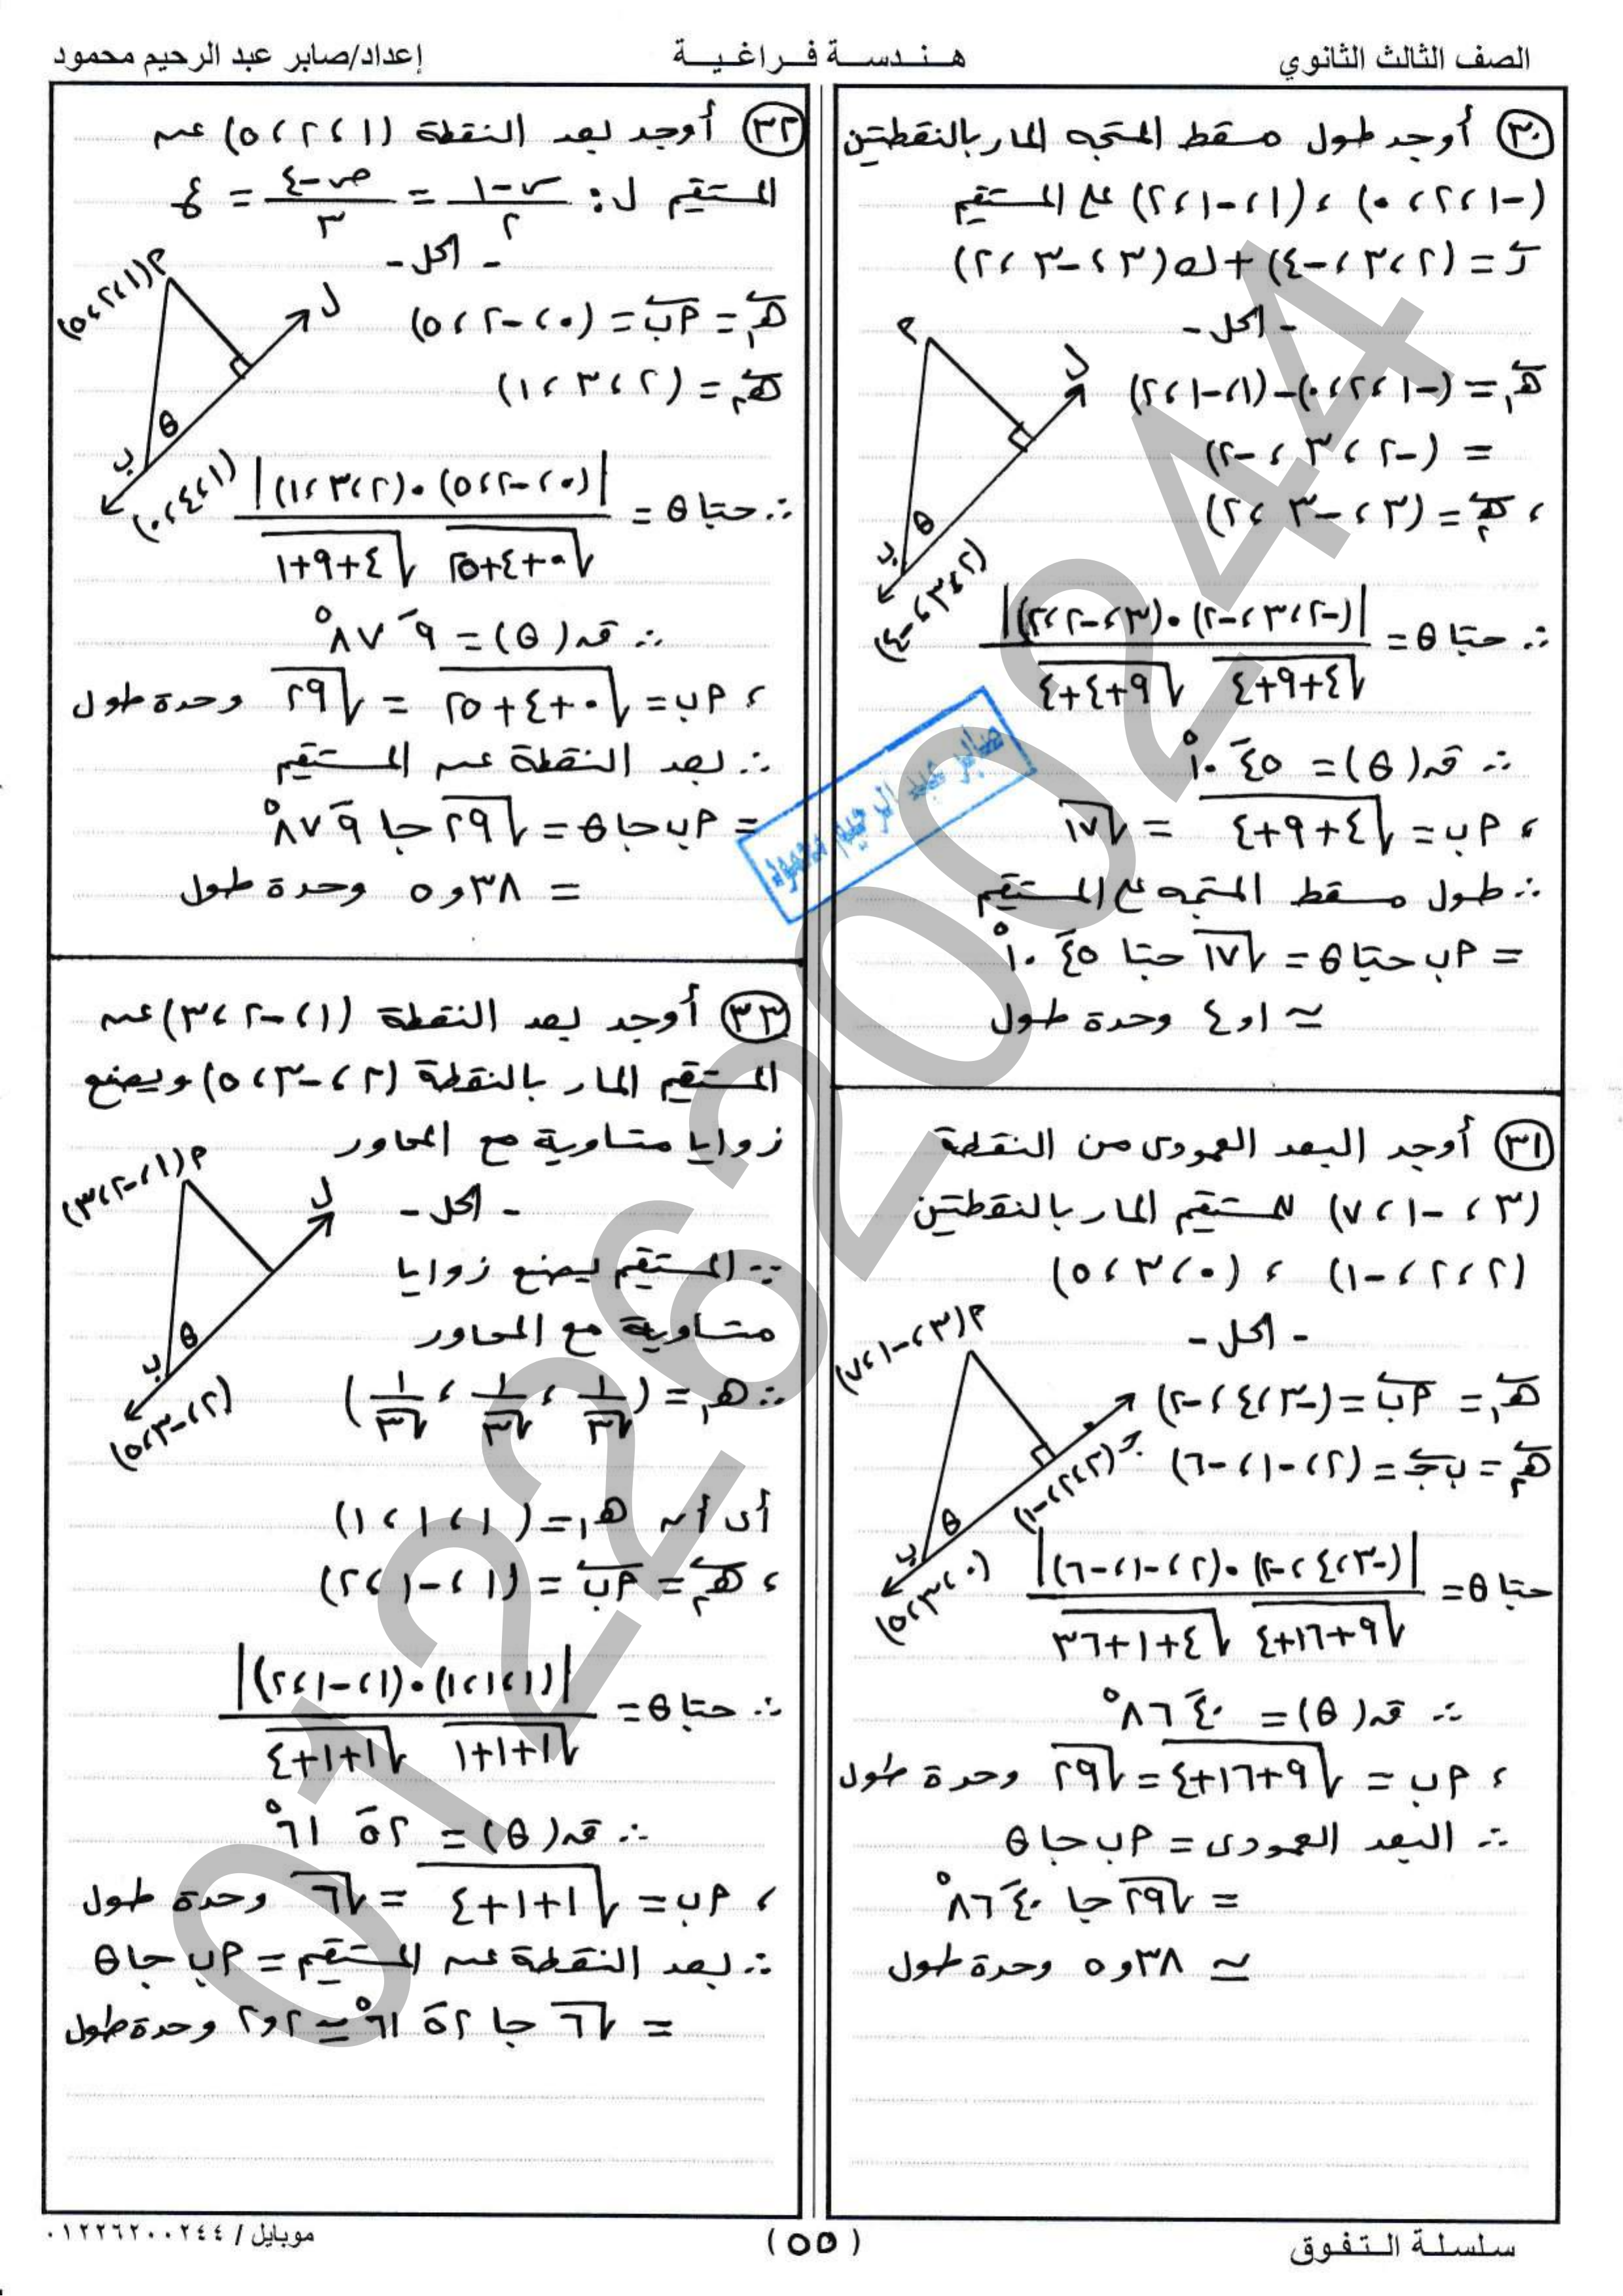 الصف الثالث الثانوي
هندسة فراغية
إعداد/صابر عبد الرحيم محمود
٣٠ أوجد طول مسقط المتجه المار بالنقطتين
(-١، ٢، ٠) ، (١، -١، ٢) على المستقيم
ر = (٢، ٣، -٤) + ك(٣، -٣، ٢)
- الحل -
هـ١ = (-١، ٢، ٠) - (١، -١، ٢)
= (-٢، ٣، -٢)
، هـ٢ = (٣، -٣، ٢)
∴ حتا θ = |(-٢، ٣، -٢)•(٣، -٢، ٢)| / √٤+٩+٤ √٩+٤+٤
∴ قه(θ) = ٤٥َ ١٠°
، أب = √٤+٩+٤ = √١٧
∴ طول مسقط المتجه على المستقيم
= أب حتا θ = √١٧ حتا ٤٥َ ١٠°
≃ ١و٤ وحدة طول
أ
ل
θ
ب
(٢، ٣، -٤)
٣١ أوجد البعد العمودى من النقطة
(٣، -١، ٧) للمستقيم المار بالنقطتين
(٢، ٢، -١) ، (٠، ٣، ٥)
- الحل -
هـ١ = أب = (-٣، ٤، -٢)
هـ٢ = بجـ = (٢، -١، -٦)
حتا θ = |(-٣، ٤، -٢)•(٢، -١، -٦)| / √٩+١٦+٤ √٤+١+٣٦
∴ قه(θ) = ٤٠َ ٨٦°
، أب = √٩+١٦+٤ = √٢٩ وحدة طول
∴ البعد العمودى = أب جا θ
= √٢٩ جا ٤٠َ ٨٦°
≃ ٣٨و٥ وحدة طول
أ(٣، -١، ٧)
جـ(٢، ٢، -١)
θ
ب
(٠، ٣، ٥)
٣٢ أوجد بعد النقطة (١، ٢، ٥) عن
المستقيم ل: س-١/٢ = ص-٤/٣ = ع
- الحل -
هـ١ = أب = (٠، -٢، ٥)
هـ٢ = (٢، ٣، ١)
∴ حتا θ = |(٠، -٢، ٥)•(٢، ٣، ١)| / √٠+٤+٢٥ √٤+٩+١
∴ قه(θ) = ٩َ ٨٧°
، أب = √٠+٤+٢٥ = √٢٩ وحدة طول
∴ بعد النقطة عن المستقيم
= أب جا θ = √٢٩ جا ٩َ ٨٧°
= ٣٨و٥ وحدة طول
أ(١، ٢، ٥)
ل
θ
ب
(١، ٤، ٠)
٣٣ أوجد بعد النقطة (١، -٢، ٣) عن
المستقيم المار بالنقطة (٢، -٣، ٥) ويصنع
زوايا متساوية مع المحاور
- الحل -
∵ المستقيم يصنع زوايا
متساوية مع المحاور
∴ هـ١ = (١/√٣، ١/√٣، ١/√٣)
أى أن هـ١ = (١، ١، ١)
، هـ٢ = أب = (١، -١، ٢)
∴ حتا θ = |(١، ١، ١)•(١، -١، ٢)| / √١+١+١ √١+١+٤
∴ قه(θ) = ٥٢َ ٦١°
، أب = √١+١+٤ = √٦ وحدة طول
∴ بعد النقطة عن المستقيم = أب جا θ
= √٦ جا ٥٢َ ٦١° ≃ ٢و٢ وحدة طول
أ(١، -٢، ٣)
ل
θ
ب
(٢، -٣، ٥)
صابر عبد الرحيم محمود
01226200244
سلسلة التفوق
(٥٥)
موبايل / ٠١٢٢٦٢٠٠٢٤٤